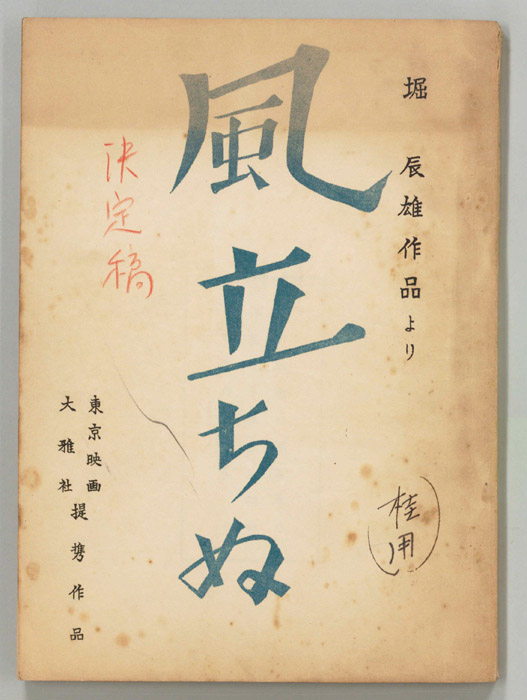 堀 辰雄作品より
風立ちぬ
決定稿
(桂用)
東京映画
大雅社
提携作品